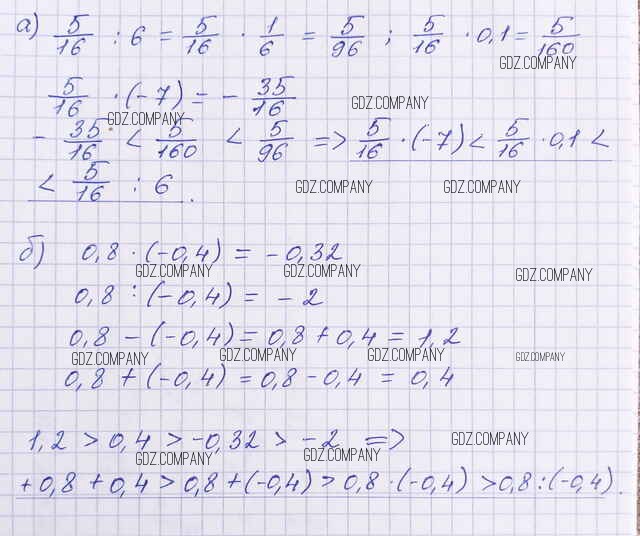 а) 5/16 : 6 = 5/16 · 1/6 = 5/96 ; 5/16 · 0,1 = 5/160
GDZ.COMPANY
5/16 · (-7) = - 35/16
GDZ.COMPANY
GDZ.COMPANY
- 35/16 < 5/160 < 5/96 => 5/16 · (-7) < 5/16 · 0,1 <
< 5/16 : 6 .
GDZ.COMPANY GDZ.COMPANY
б) 0,8 · (-0,4) = -0,32
GDZ.COMPANY GDZ.COMPANY GDZ.COMPANY
0,8 : (-0,4) = -2
0,8 - (-0,4) = 0,8 + 0,4 = 1,2
GDZ.COMPANY GDZ.COMPANY GDZ.COMPANY GDZ.COMPANY
0,8 + (-0,4) = 0,8 - 0,4 = 0,4
1,2 > 0,4 > -0,32 > -2 =>
GDZ.COMPANY GDZ.COMPANY GDZ.COMPANY
+ 0,8 + 0,4 > 0,8 + (-0,4) > 0,8 · (-0,4) > 0,8 : (-0,4) .